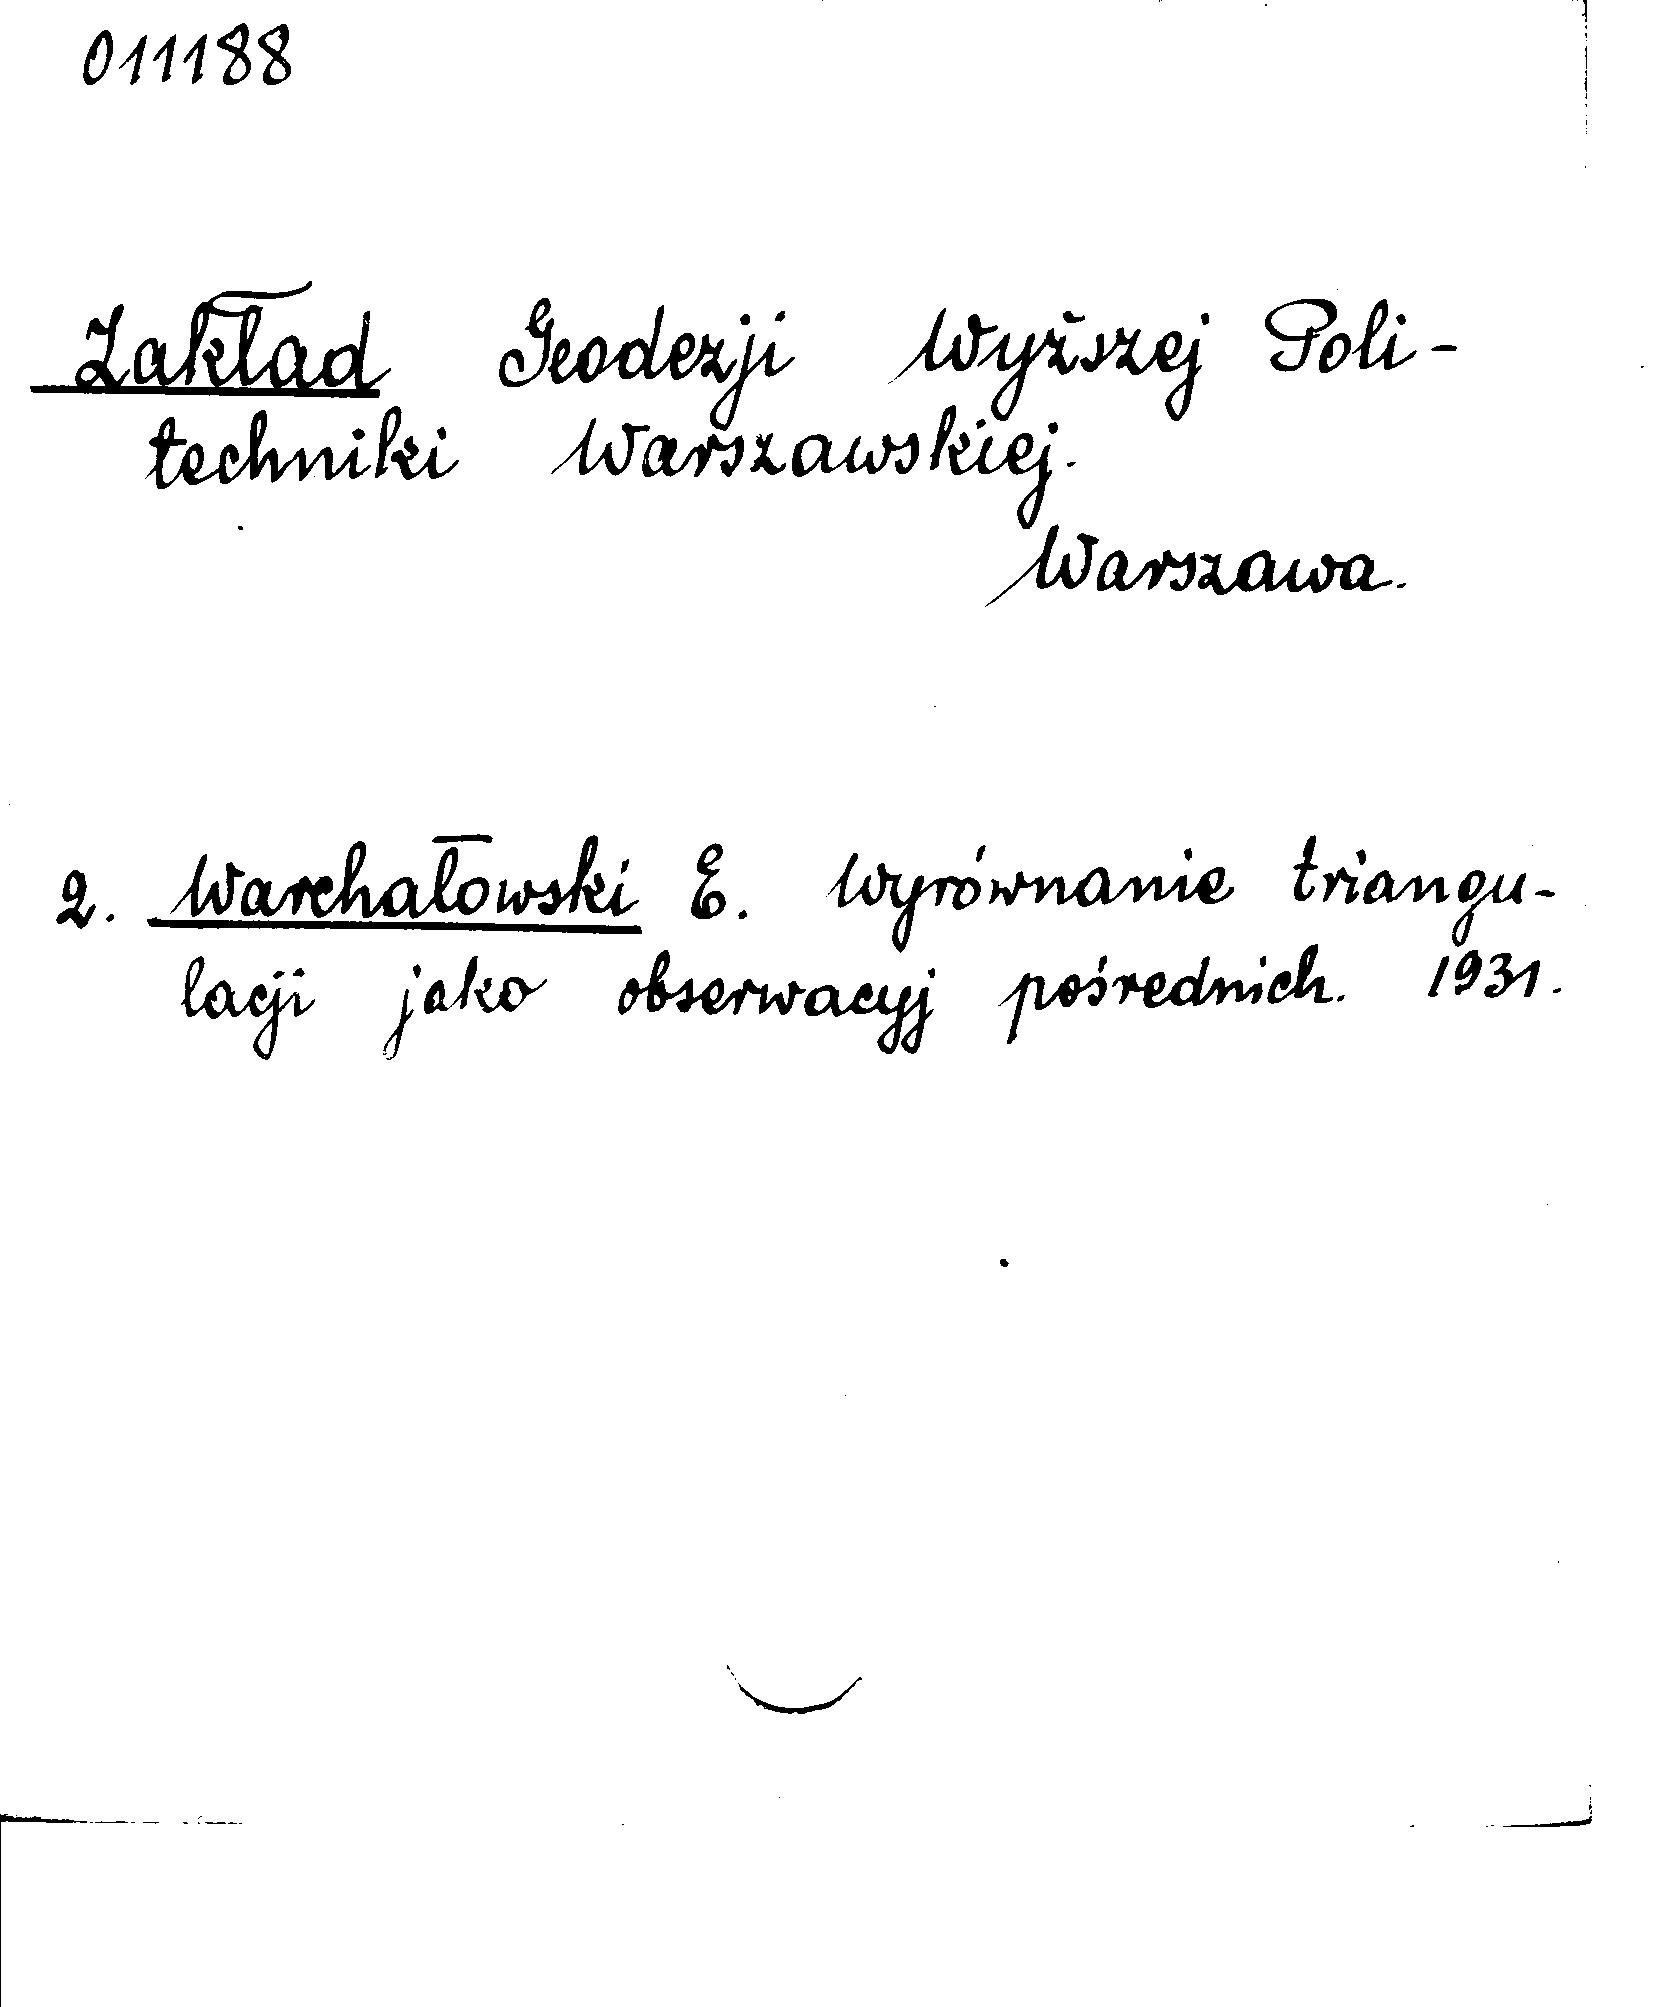 011188
Zakład Geodezji Wyższej Poli-
techniki Warszawskiej.
Warszawa.
2. Warchałowski E. Wyrównanie triangu-
lacji jako obserwacyj pośrednich. 1931.